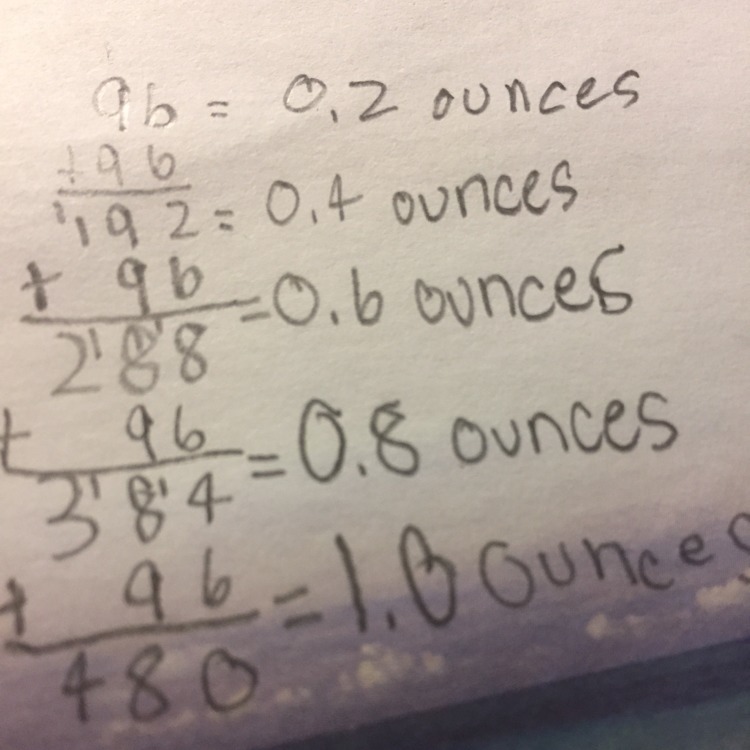 96 = 0.2 ounces
+96
192 = 0.4 ounces
+ 96
288 = 0.6 ounces
+ 96
384 = 0.8 ounces
+ 96
480 = 1.0 ounces